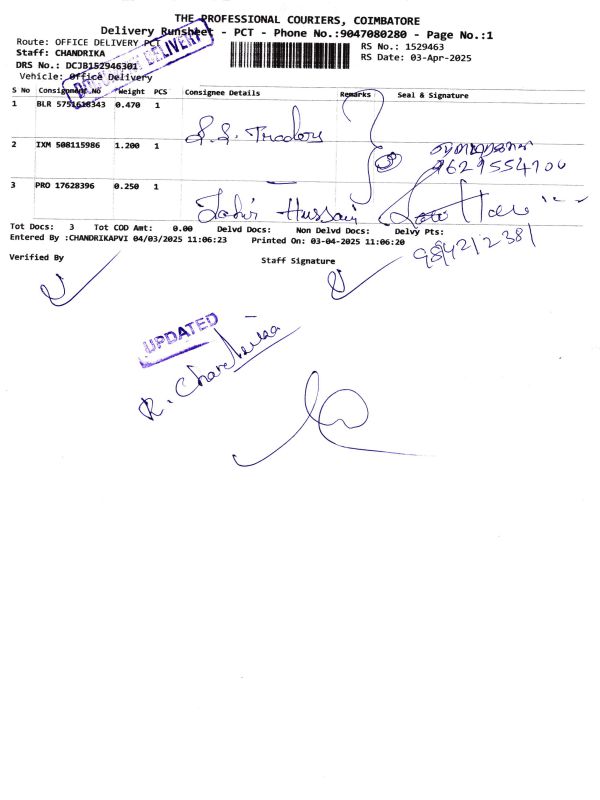 THE PROFESSIONAL COURIERS, COIMBATORE
Delivery Runsheet - PCT - Phone No.:9047080280 - Page No.:1
Route: OFFICE DELIVERY PCT
RS No.: 1529463
Staff: CHANDRIKA
RS Date: 03-Apr-2025
DRS No.: DCJB152946301
Vehicle: Office Delivery
DELIVERY
S No Consignment No Weight PCS Consignee Details Remarks Seal & Signature
1 BLR 0.470 1
S.S. Traders
2 IXM 508115986 1.200 1
9629554700
3 PRO 17628396 0.250 1
Zahir Hussain
Tot Docs: 3 Tot COD Amt: 0.00 Delvd Docs: Non Delvd Docs: Delvy Pts:
Entered By :CHANDRIKAPVI 04/03/2025 11:06:23 Printed On: 03-04-2025 11:06:20
9842122381
Verified By Staff Signature
UPDATED
R. Chandrika